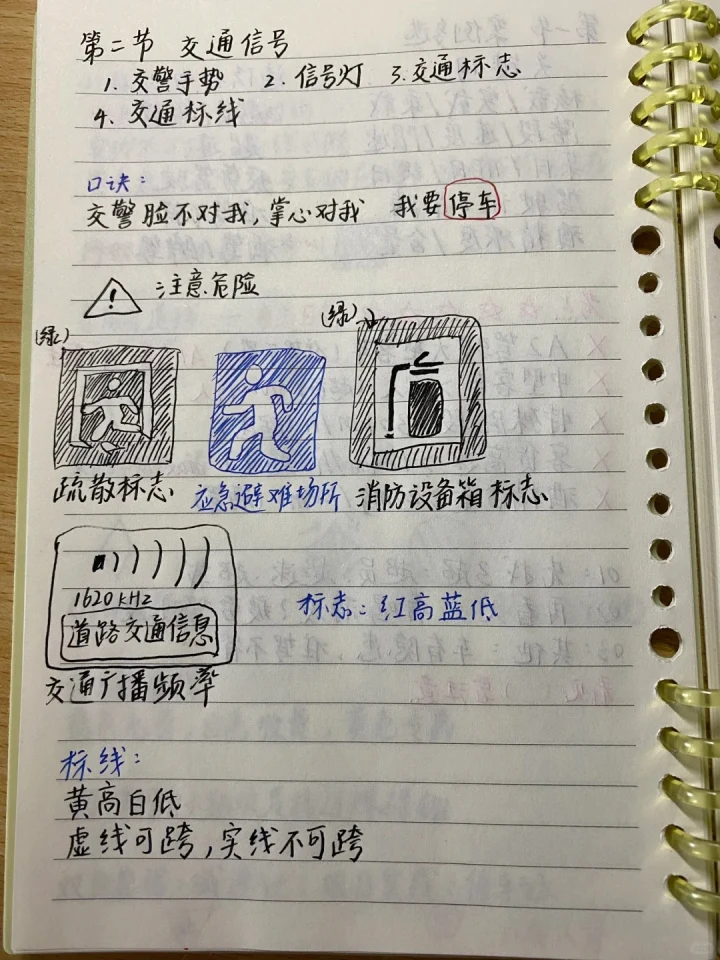 第二节 交通信号
1. 交警手势 2. 信号灯 3. 交通标志
4. 交通标线
口诀：
交警脸不对我，掌心对我 我要停车
! 注意危险
(绿) (绿)
疏散标志 应急避难场所 消防设备箱标志
1620kHz
道路交通信息
标志：红高蓝低
交通广播频率
标线：
黄高白低
虚线可跨，实线不可跨